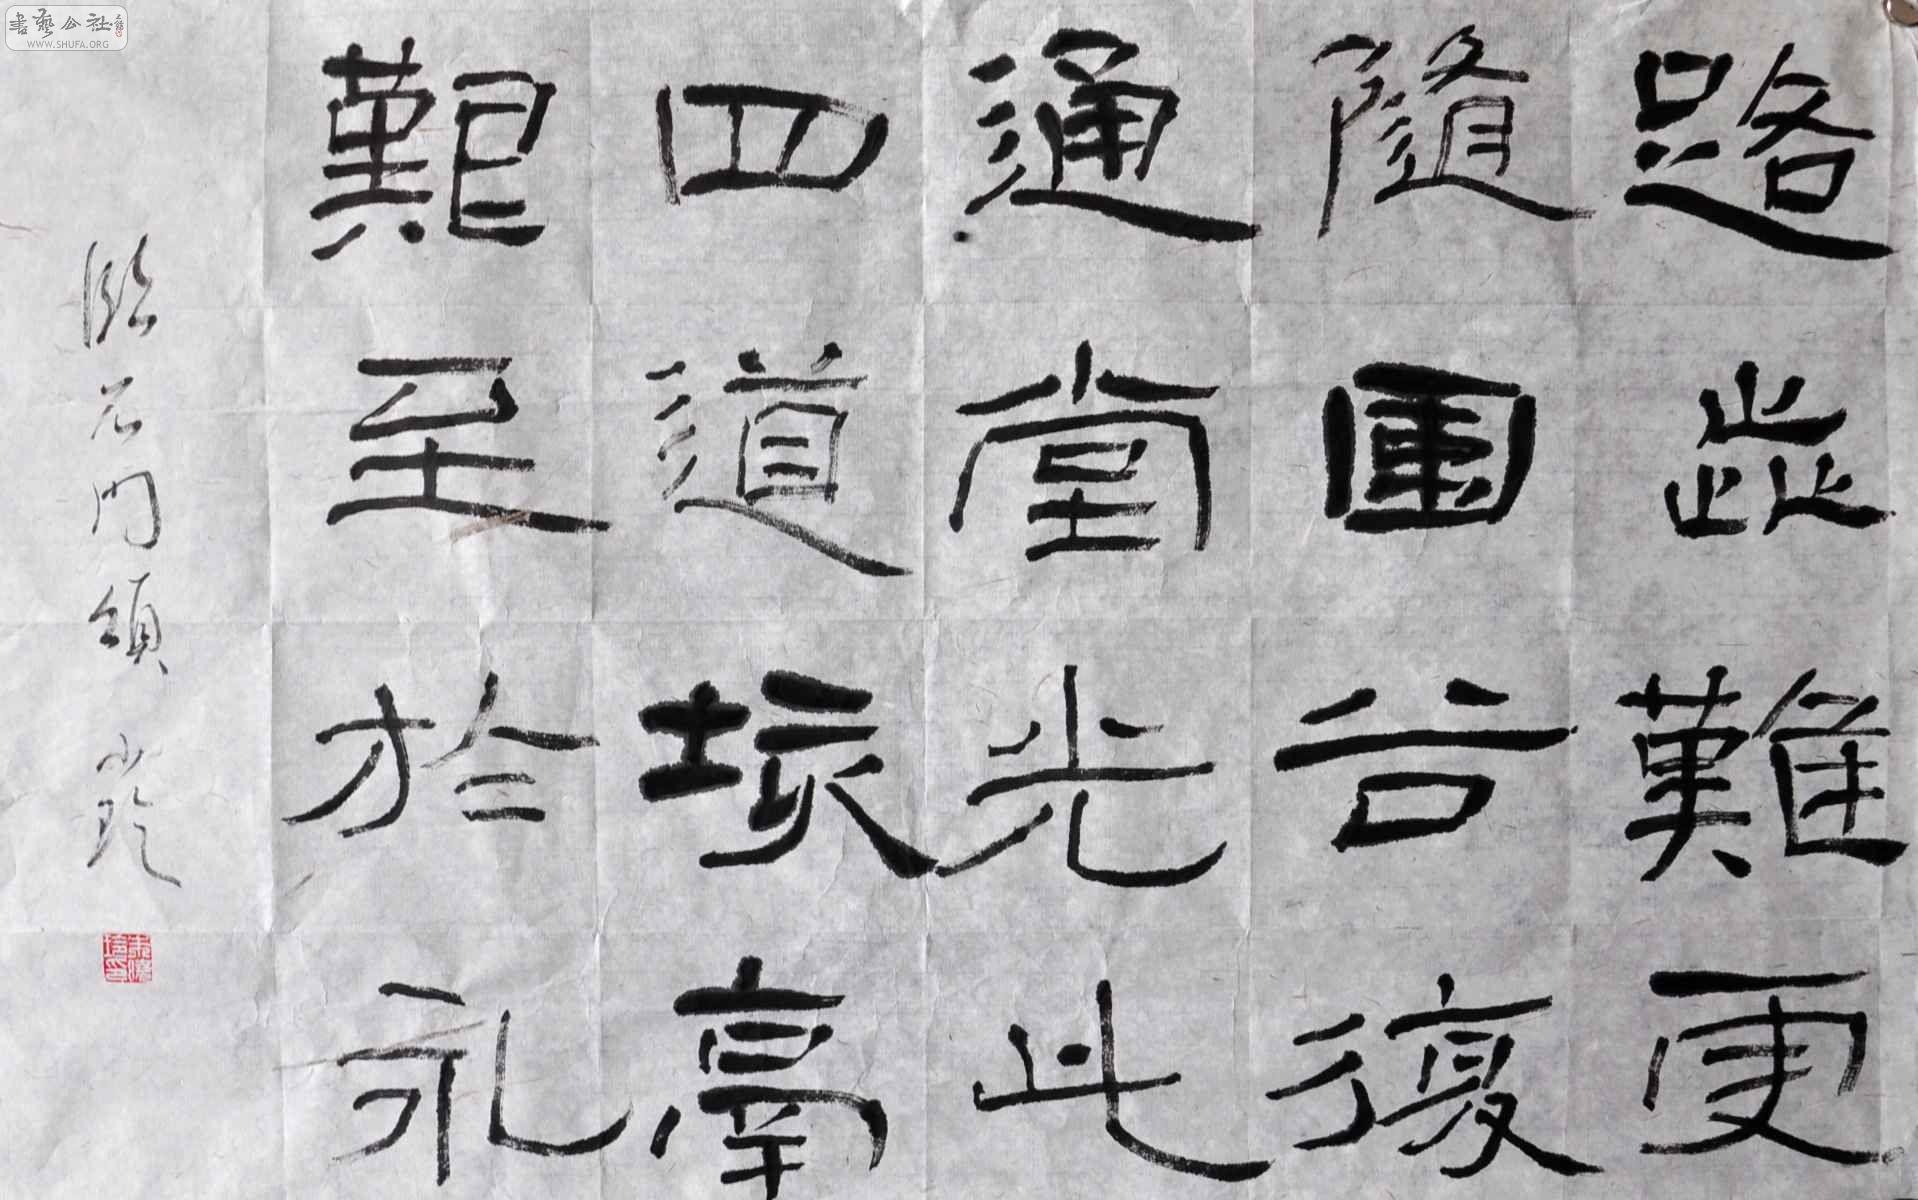 書藝公社
WWW.SHUFA.ORG
路歮難更
隨圍谷復
通堂光此
四道垓鬲
艱至於永
臨石門頌 小玲